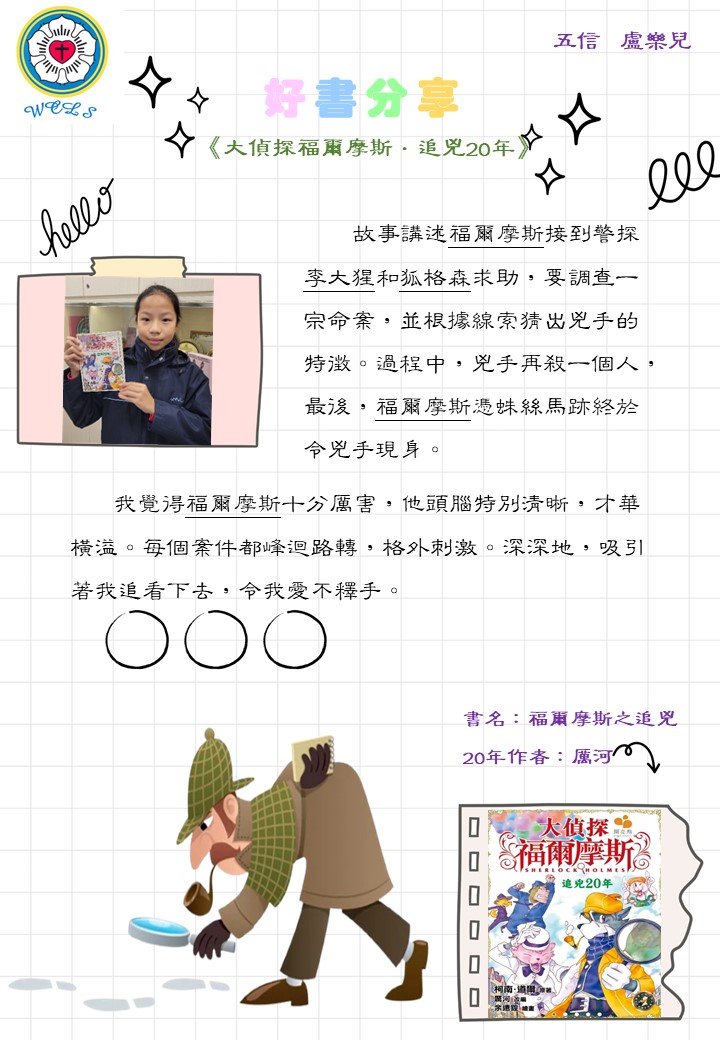 五信 盧樂兒
WCLS
好書分享
《大偵探福爾摩斯．追兇20年》
hello
故事講述福爾摩斯接到警探
李大猩和狐格森求助，要調查一
宗命案，並根據線索猜出兇手的
特徵。過程中，兇手再殺一個人，
最後，福爾摩斯憑蛛絲馬跡終於
令兇手現身。
我覺得福爾摩斯十分厲害，他頭腦特別清晰，才華
橫溢。每個案件都峰迴路轉，格外刺激。深深地，吸引
著我追看下去，令我愛不釋手。
書名：福爾摩斯之追兇
20年作者：厲河
大偵探
福爾摩斯
SHERLOCK HOLMES
追兇20年
柯南·道爾 原著
厲河 改編
余遠鍠 繪畫